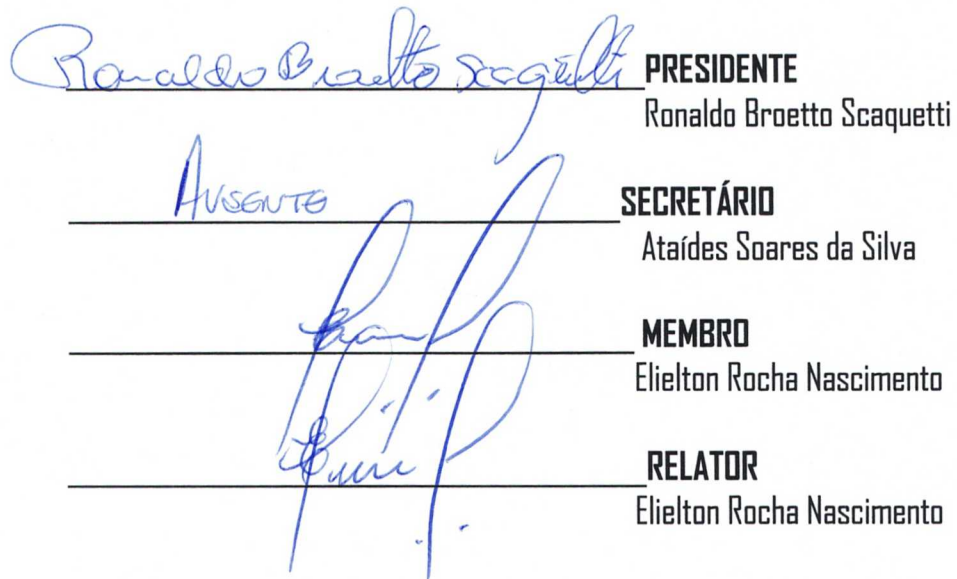 Ronaldo Broetto Scaquetti PRESIDENTE
Ronaldo Broetto Scaquetti
AUSENTE SECRETÁRIO
Ataídes Soares da Silva
MEMBRO
Elielton Rocha Nascimento
RELATOR
Elielton Rocha Nascimento